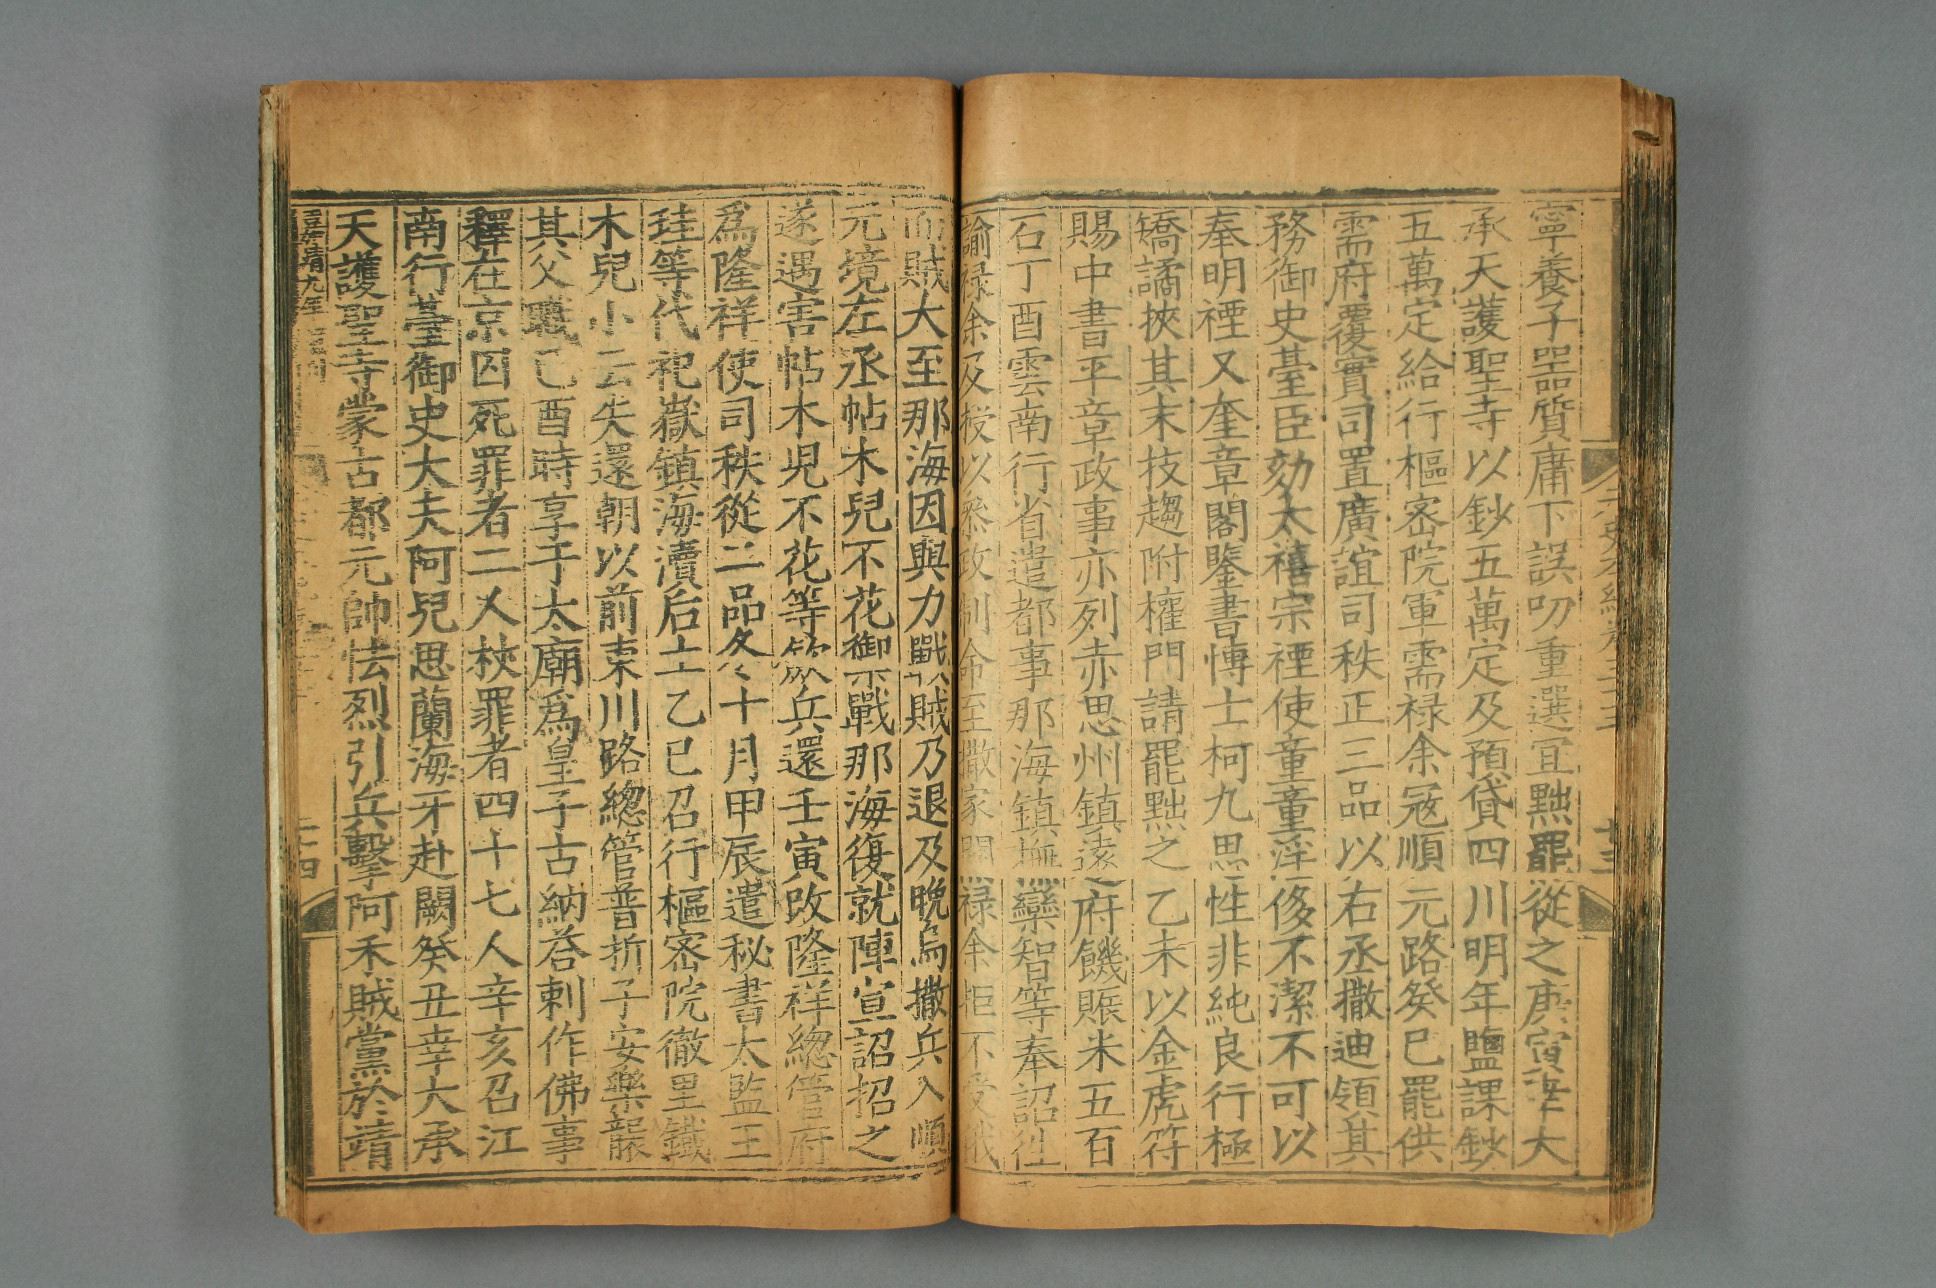 寧養子器質庸下誤叨重選宜黜罷從之庚寅幸大
承天護聖寺以鈔五萬定及預貸四川明年鹽課鈔
五萬定給行樞密院軍需祿余冦順元路癸巳罷供
需府覆實司置廣誼司秩正三品以右丞撒迪領其
務御史臺臣劾太禧宗禋使童童淫侈不潔不可以
奉明禋又奎章閣鑒書博士柯九思性非純良行極
矯譎挾其末技趨附權門請罷黜之乙未以金虎符
賜中書平章政事亦列赤思州鎮遠府饑賑米五百
石丁酉雲南行省遣都事那海鎮撫欒智等奉詔往
諭祿余及授以叅政制命至撒家關祿余拒不受俄
而賊大至那海因與力戰賊乃退及晚烏撒兵入順
元境左丞帖木兒不花禦戰那海復就陣宣詔招之
遂遇害帖木兒不花等欲兵還壬寅改隆祥總管府
爲隆祥使司秩從二品冬十月甲辰遣秘書太監王
珪等代祀嶽鎮海瀆后土乙巳召行樞密院徹里鐵
木兒小云失還朝以前東川路總管普折子安樂襲
其父職己酉時享于太廟爲皇子古納荅剌作佛事
釋在京囚死罪者二人杖罪者四十七人辛亥召江
南行臺御史大夫阿兒思蘭海牙赴闕癸丑幸大承
天護聖寺蒙古都元帥怯烈引兵擊阿禾賊黨於靖
嘉靖九年